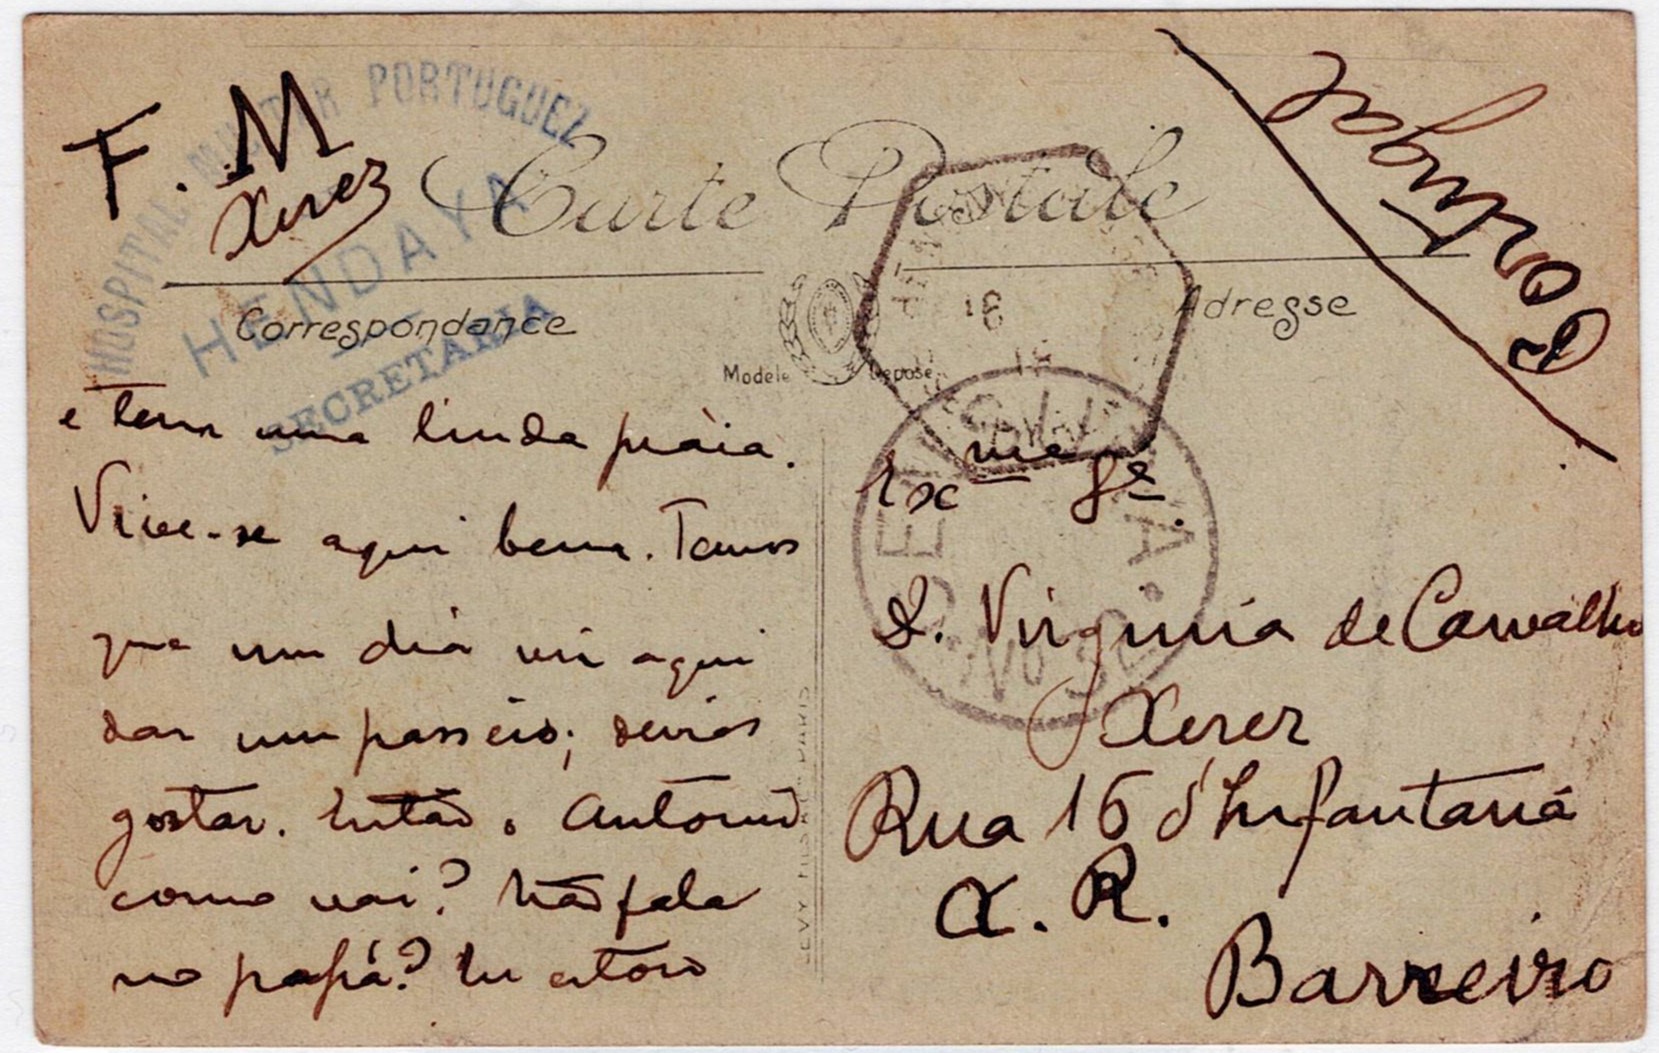 F. M
Xerez
HOSPITAL MILITAR PORTUGUEZ
HENDAYA
SECRETARIA
Carte Postale
Correspondance
Adresse
Modele Déposé
Portugal
e tem uma linda praia.
Vive-se aqui bem. Temos
que um dia vir aqui
dar um passeio; devias
gostar. Então o Antonio
como vai? Não fala
no papá? Eu estou
18
CENSURA
Exma Sra.
D. Virginia de Carvalho
Xerez
Rua 16 d'Infantaria
A. R.
Barreiro
LEVY FILS PARIS